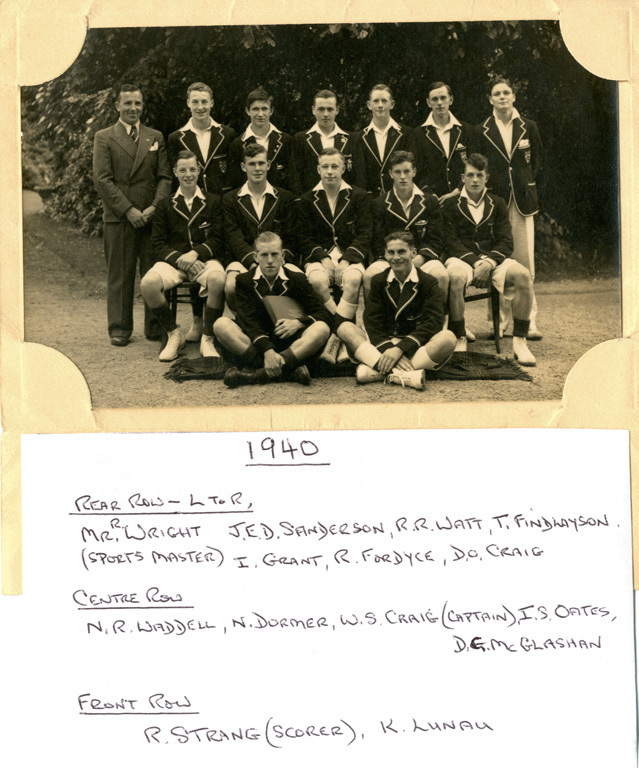 1940
REAR ROW - L TO R,
MR. R. WRIGHT J.E.D. SANDERSON, R.R. WATT, T. FINDLAYSON.
(SPORTS MASTER) I. GRANT, R. FORDYCE, D.O. CRAIG
CENTRE ROW
N.R. WADDELL, N. DORMER, W.S. CRAIG (CAPTAIN), I.S. OATES,
D.G. McGLASHAN
FRONT ROW
R. STRANG (SCORER), K. LUNAU